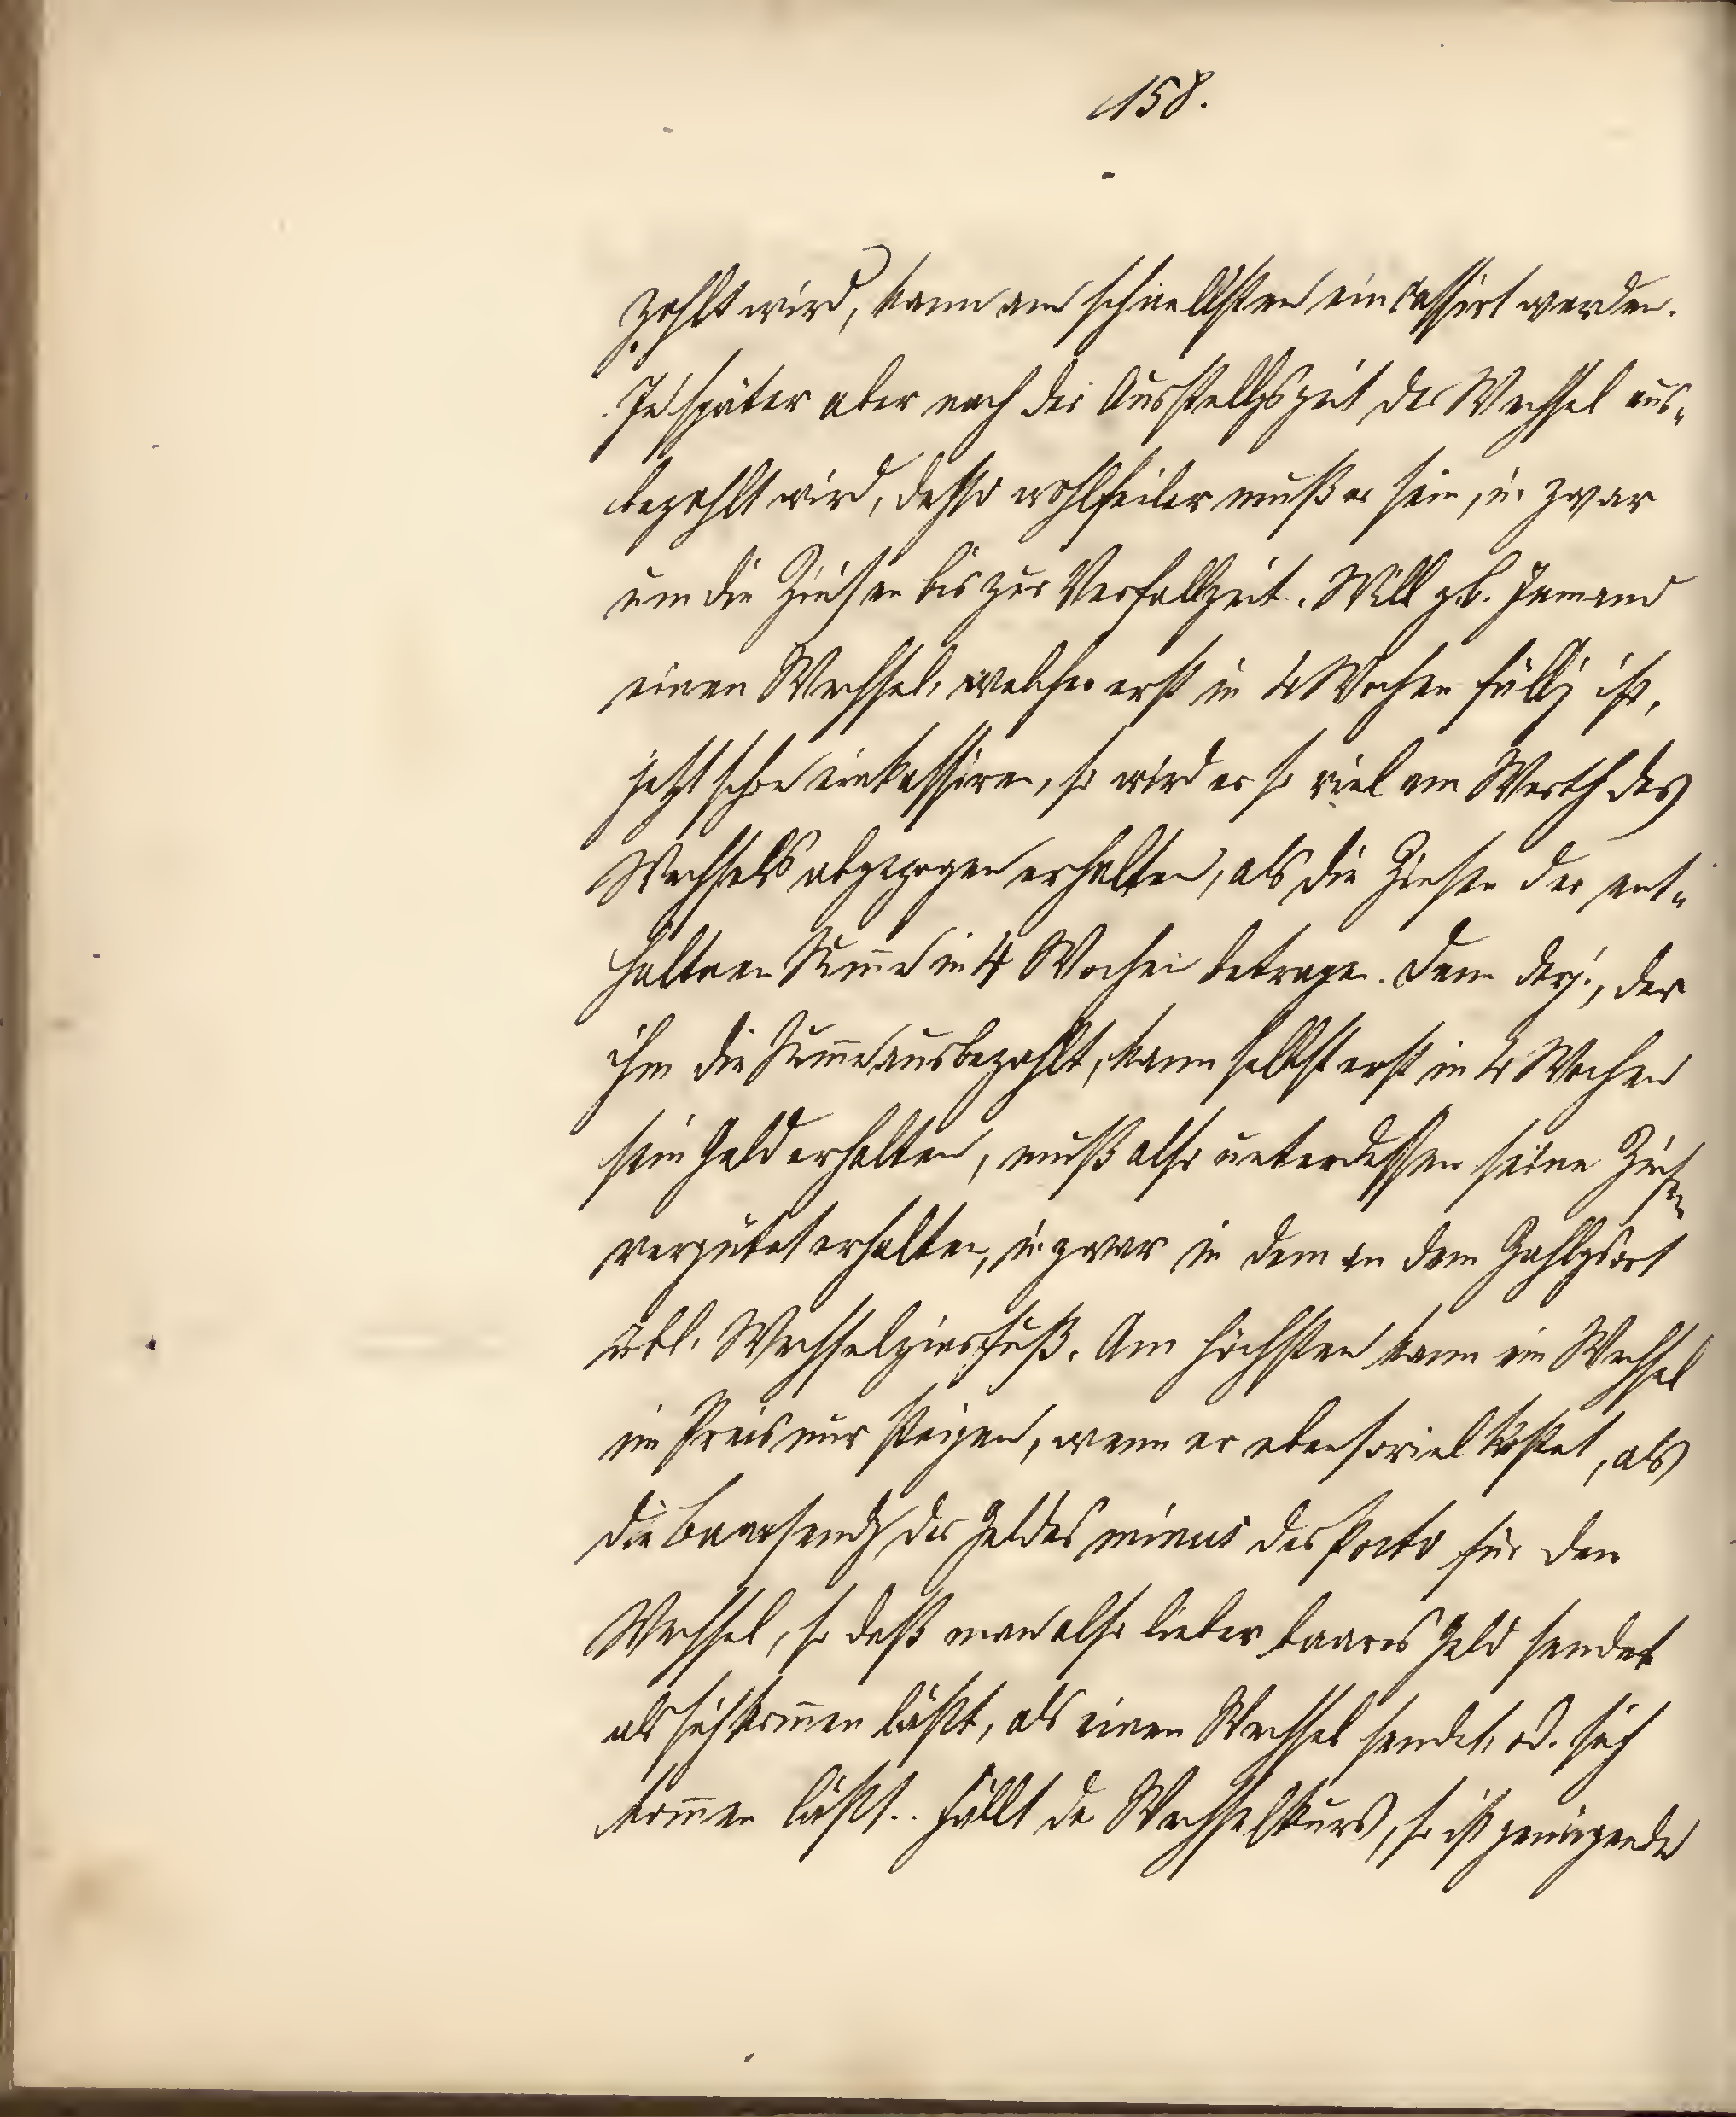 158.
zahlt wird, kann am schnellsten eincassirt werden.
Je später aber nach der Ausstellgszeit der Wechsel aus-
bezahlt wird, desto wohlfeiler muß er sein, u. zwar
um die Zinsen bis zur Verfallzeit. Will z.b. Jemand
einen Wechsel, welcher erst in 4 Wochen fällig ist,
jetzt schon einkassiren, so wird er so viel am Werth des
Wechsels abgezogen erhalten, als die Zinsen der ent-
haltnen Sum̄e in 4 Wochen betragen. Denn derj., der
ihm die Sum̄e ausbezahlt, kann selbst erst in 4 Wochen
sein Geld erhalten, muß also unterdessen seine Zinsen
vergütet erhalten, u. zwar in dem an dem Zahlgsort
übl. Wechselzinsfuß. Am höchsten kann ein Wechsel
im Preis nur steigen, wenn er ebensoviel kostet, als
die Baarsendg des Geldes minus des Porto für den
Wechsel, so daß man also lieber baares Geld sendet
als sich kom̄en läßt, als einen Wechsel sendet, od. sich
kom̄en läßt. Fällt der Wechselkurs, so ist